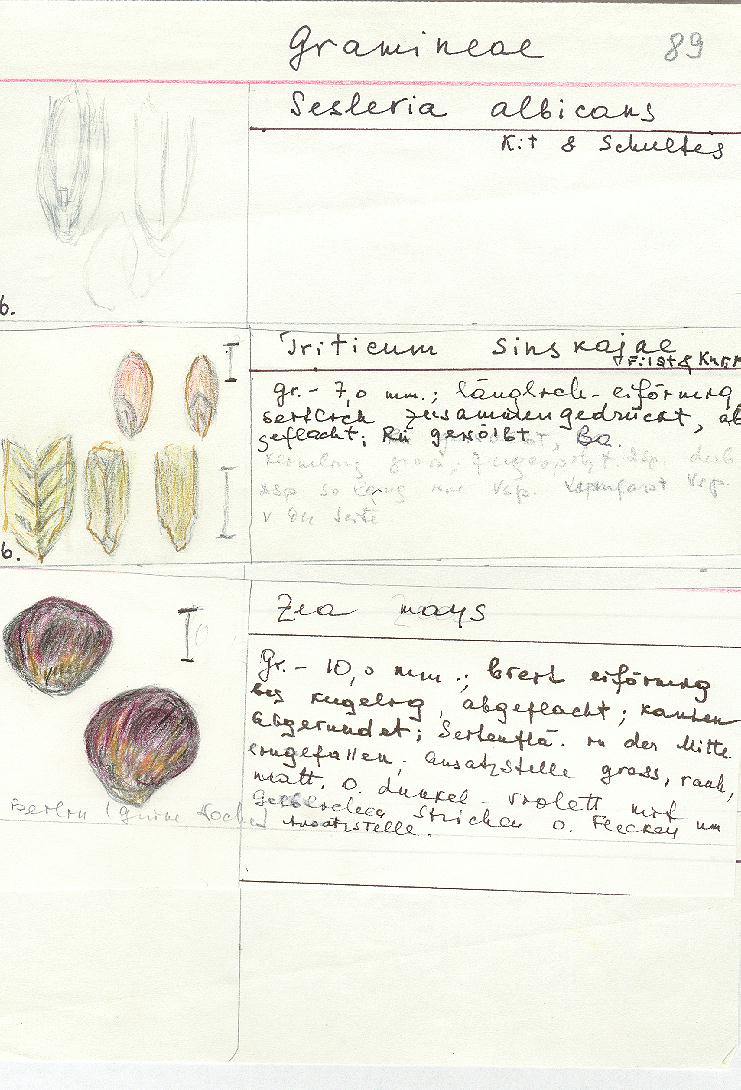 Gramineae 89
Sesleria albicans
Kit & Schultes
6.
Triticum sinskajae
Filat & Kurk
gr. - 7,0 mm.; länglich-eiförmig
seitlich zusammengedrückt, ab
geflacht; Rü gewölbt, Ba.
v der Seite
6.
Zea mays
Gr. - 10,0 mm.; breit eiförmig
bis kugelig, abgeflacht; kanten
abgerundet; Seitenflä. in der Mitte
eingefallen; ansatzstelle gross, rauh,
matt. o. dunkel-violett mit
strichen o. Flecken um
Ansatzstelle.
Berlin (grüne Woche)